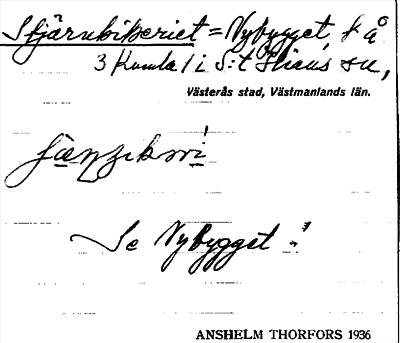 Stjärnbikeriet = Nybygget, k å
3 Kumla 1 i S:t Ilians sn,
Västerås stad, Västmanlands län.
Se Nybygget!
ANSHELM THORFORS 1936